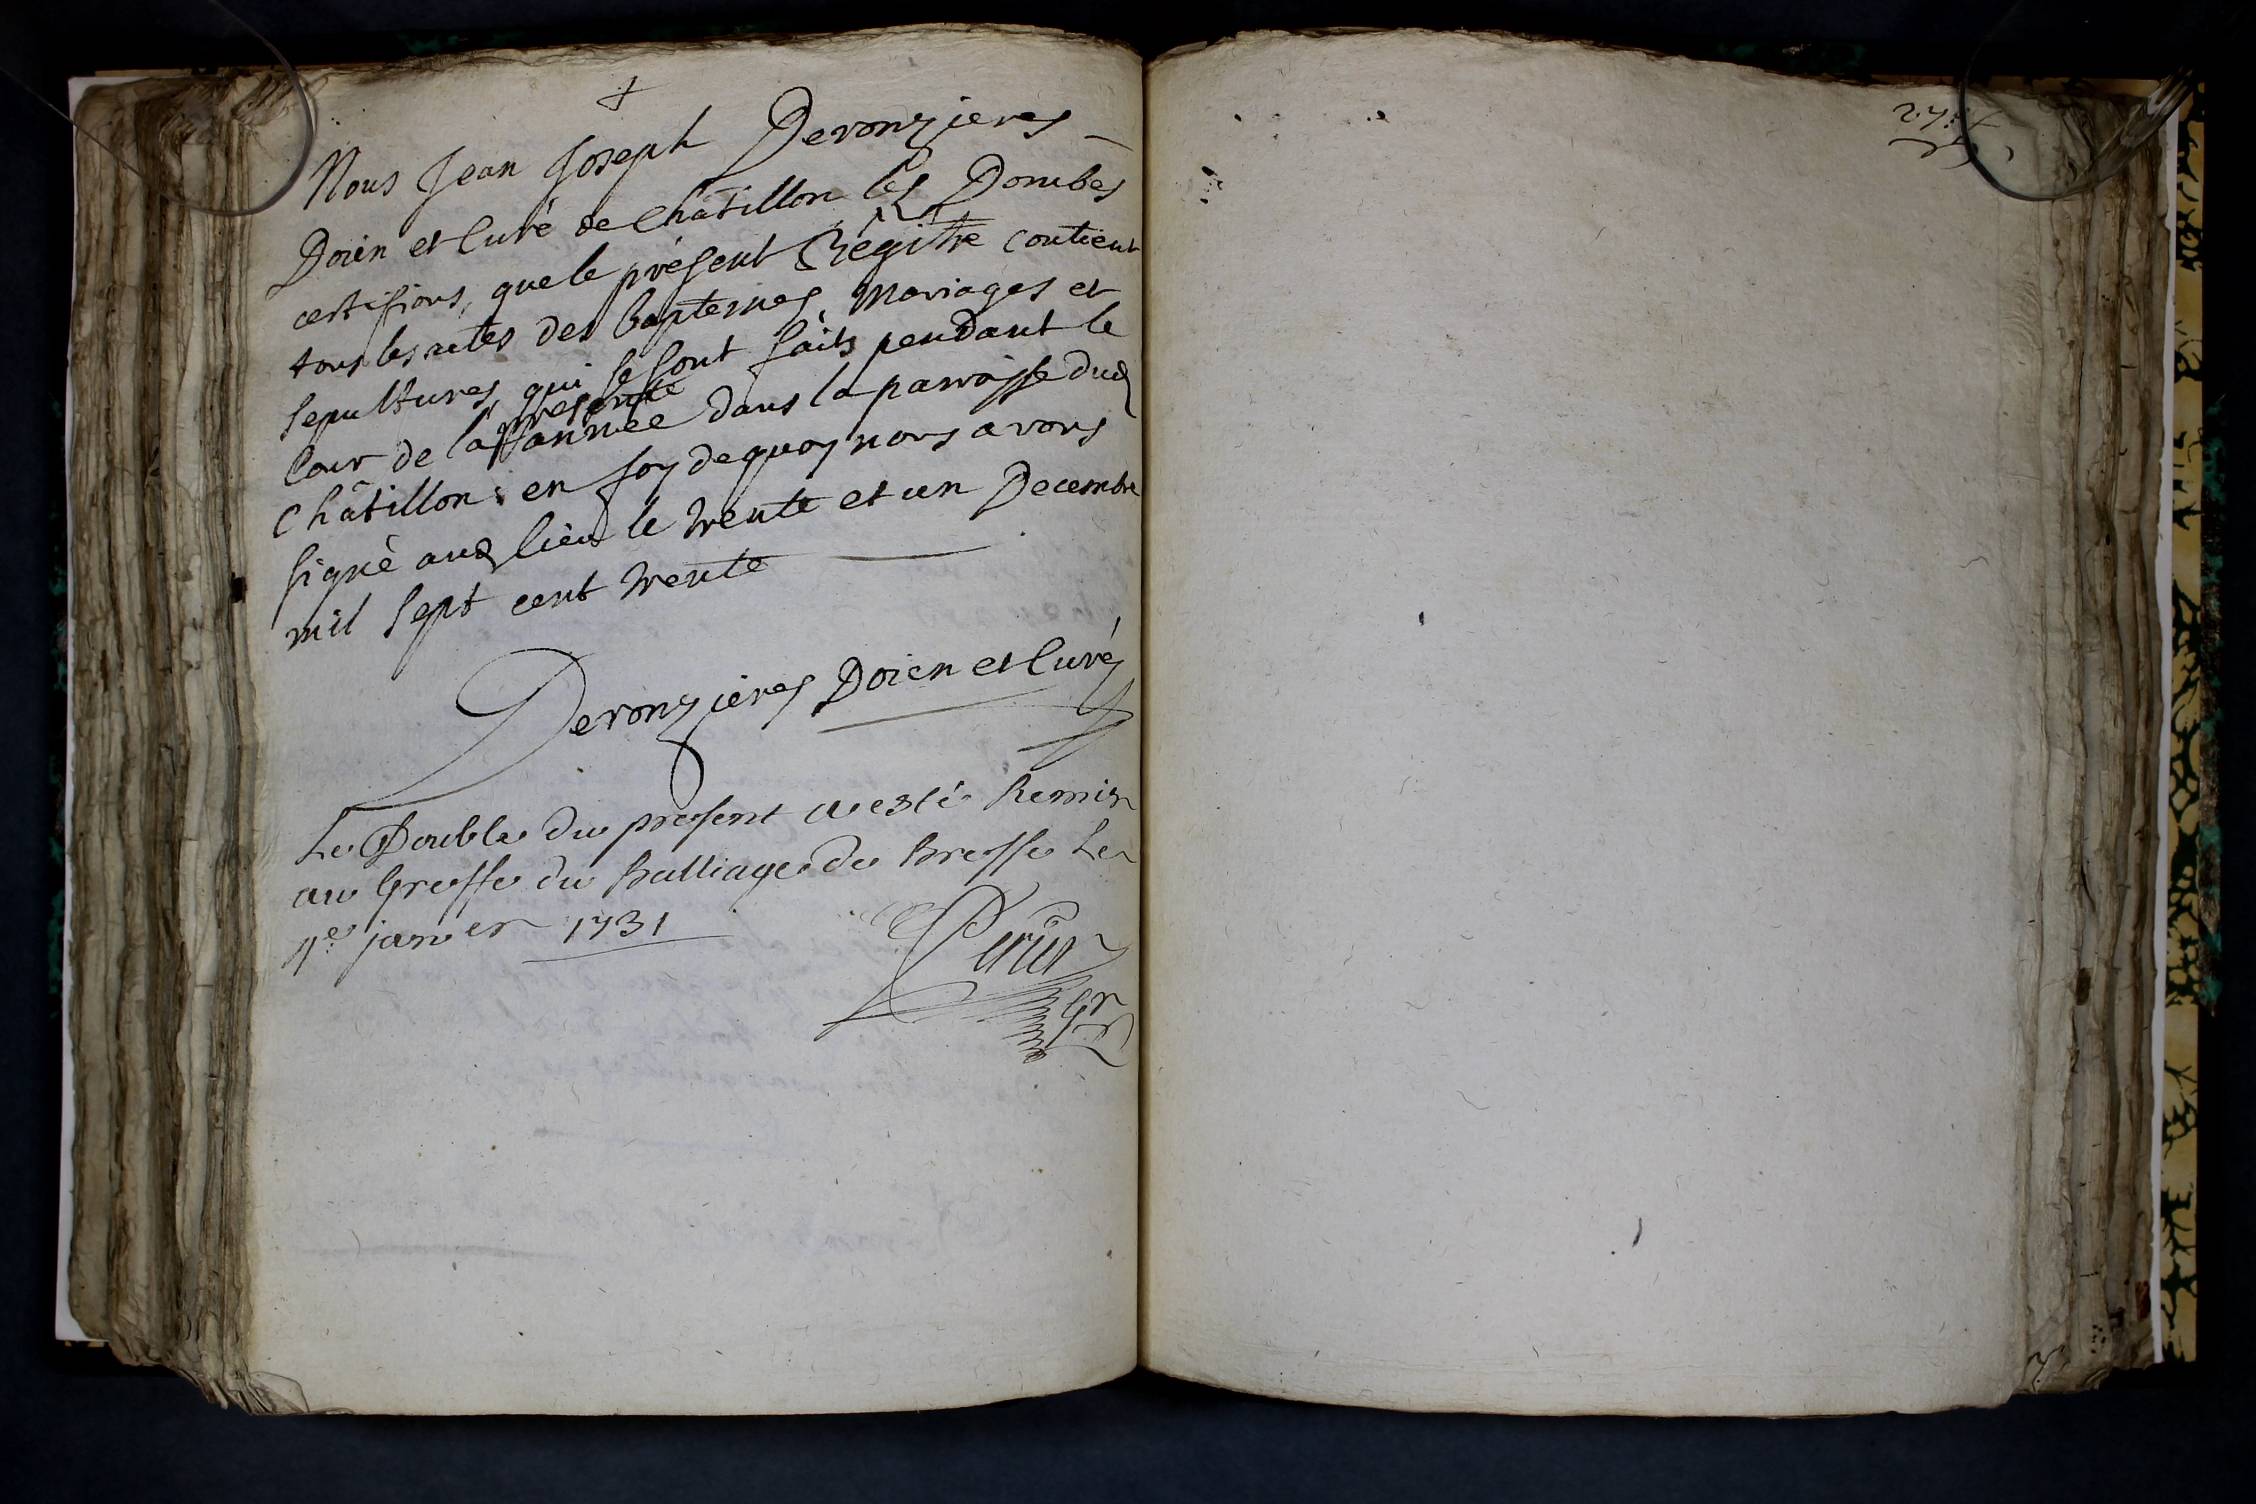 +
Nous Jean Joseph Deronzieres
Doïen et Curé de Châtillon les Dombes
certifions, que le présent Régitre contient
tous les actes des baptemes, Mariages et
sepultures, qui se sont faits pendant le
présente
cour de la année dans la parroisse dud
Châtillon: en foy de quoy nous avons
signé aud lieu le trente et un Decembre
mil sept cent trente
Deronzieres Doien et Curé
Le Double du present a esté Remis
au Greffe du Balliage de Bresse Le
janvier 1731
Gr